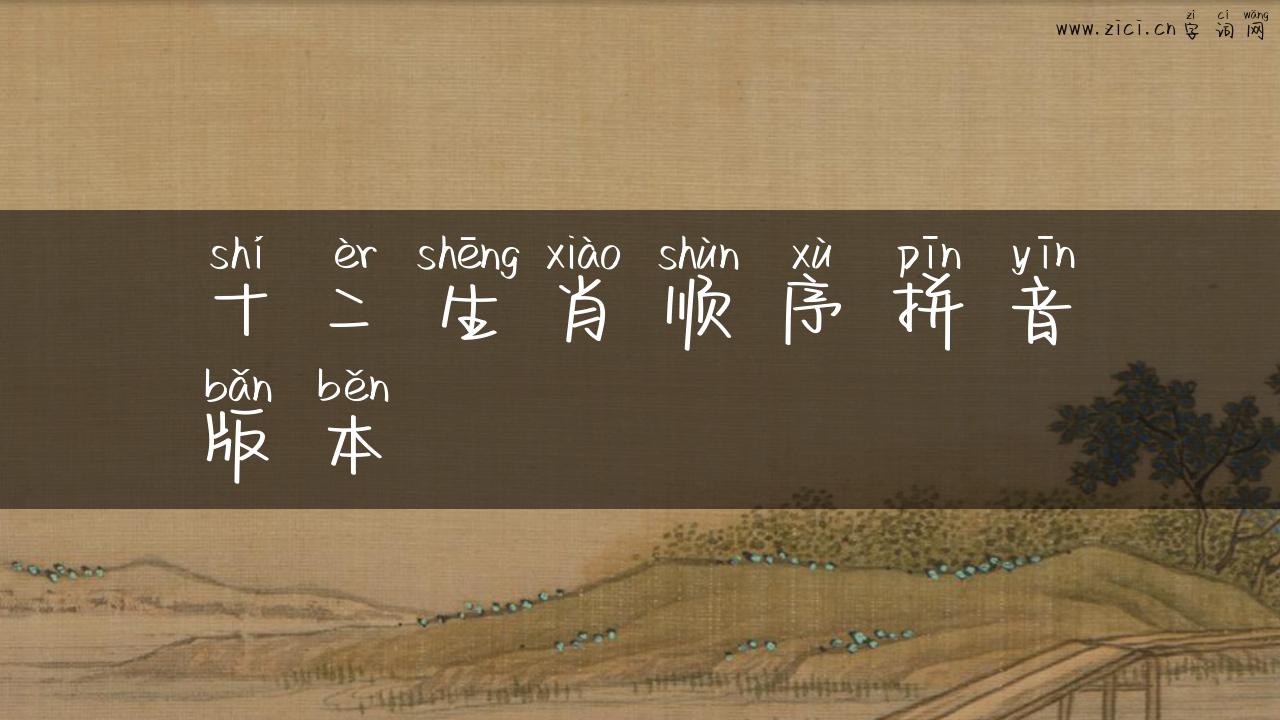 zì cí wǎng
www.zici.cn字词网
shí èr shēng xiào shùn xù pīn yīn
十二生肖顺序拼音
bǎn běn
版本